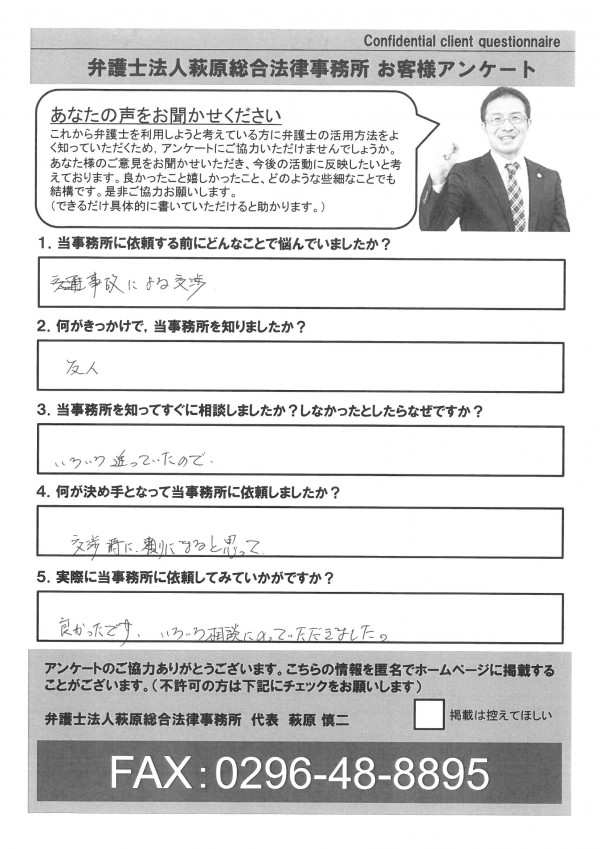 Confidential client questionnaire
弁護士法人萩原総合法律事務所 お客様アンケート
あなたの声をお聞かせください
これから弁護士を利用しようと考えている方に弁護士の活用方法をよ
く知っていただくため，アンケートにご協力いただけませんでしょうか。
あなた様のご意見をお聞かせいただき、今後の活動に反映したいと考
えております。良かったこと嬉しかったこと、どのような些細なことでも
結構です。是非ご協力お願いします。
（できるだけ具体的に書いていただけると助かります。）
1．当事務所に依頼する前にどんなことで悩んでいましたか？
交通事故による交渉
2．何がきっかけで，当事務所を知りましたか？
友人
3．当事務所を知ってすぐに相談しましたか？しなかったとしたらなぜですか？
いろいろ迷っていたので.
4．何が決め手となって当事務所に依頼しましたか？
交渉時に、有利になると思って.
5．実際に当事務所に依頼してみていかがですか？
良かったです、いろいろ相談にのっていただきました。
アンケートのご協力ありがとうございます。こちらの情報を匿名でホームページに掲載する
ことがございます。（不許可の方は下記にチェックをお願いします）
弁護士法人萩原総合法律事務所 代表 萩原 慎二
掲載は控えてほしい
FAX：0296-48-8895